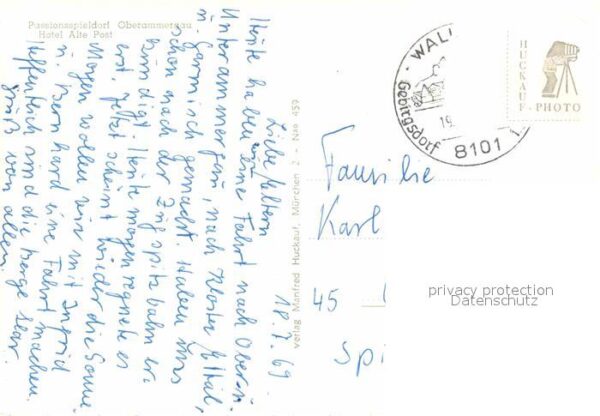 Passionsspieldorf Oberammergau
Hotel Alte Post
18.7.69
Liebe Eltern
Heute haben wir eine Fahrt nach Ober- u.
Unterammergau, nach Kloster Ettal,
u. Garmisch gemacht. Haben uns
schon nach der Zugspitzbahn er-
kundigt. Heute morgen regnete es
erst. Jetzt scheint wieder die Sonne.
Morgen wollen wir mit Ingrid
u. Bernhard eine Fahrt machen.
Hoffentlich sind die Berge klar.
Gruß von allen.
verlag Manfred Huckauf, München 2 - Nae 459
WAL
Gebirgsdorf
19.
8101
HUCKAUF-PHOTO
Familie
Karl
45
Sp
privacy protection
Datenschutz